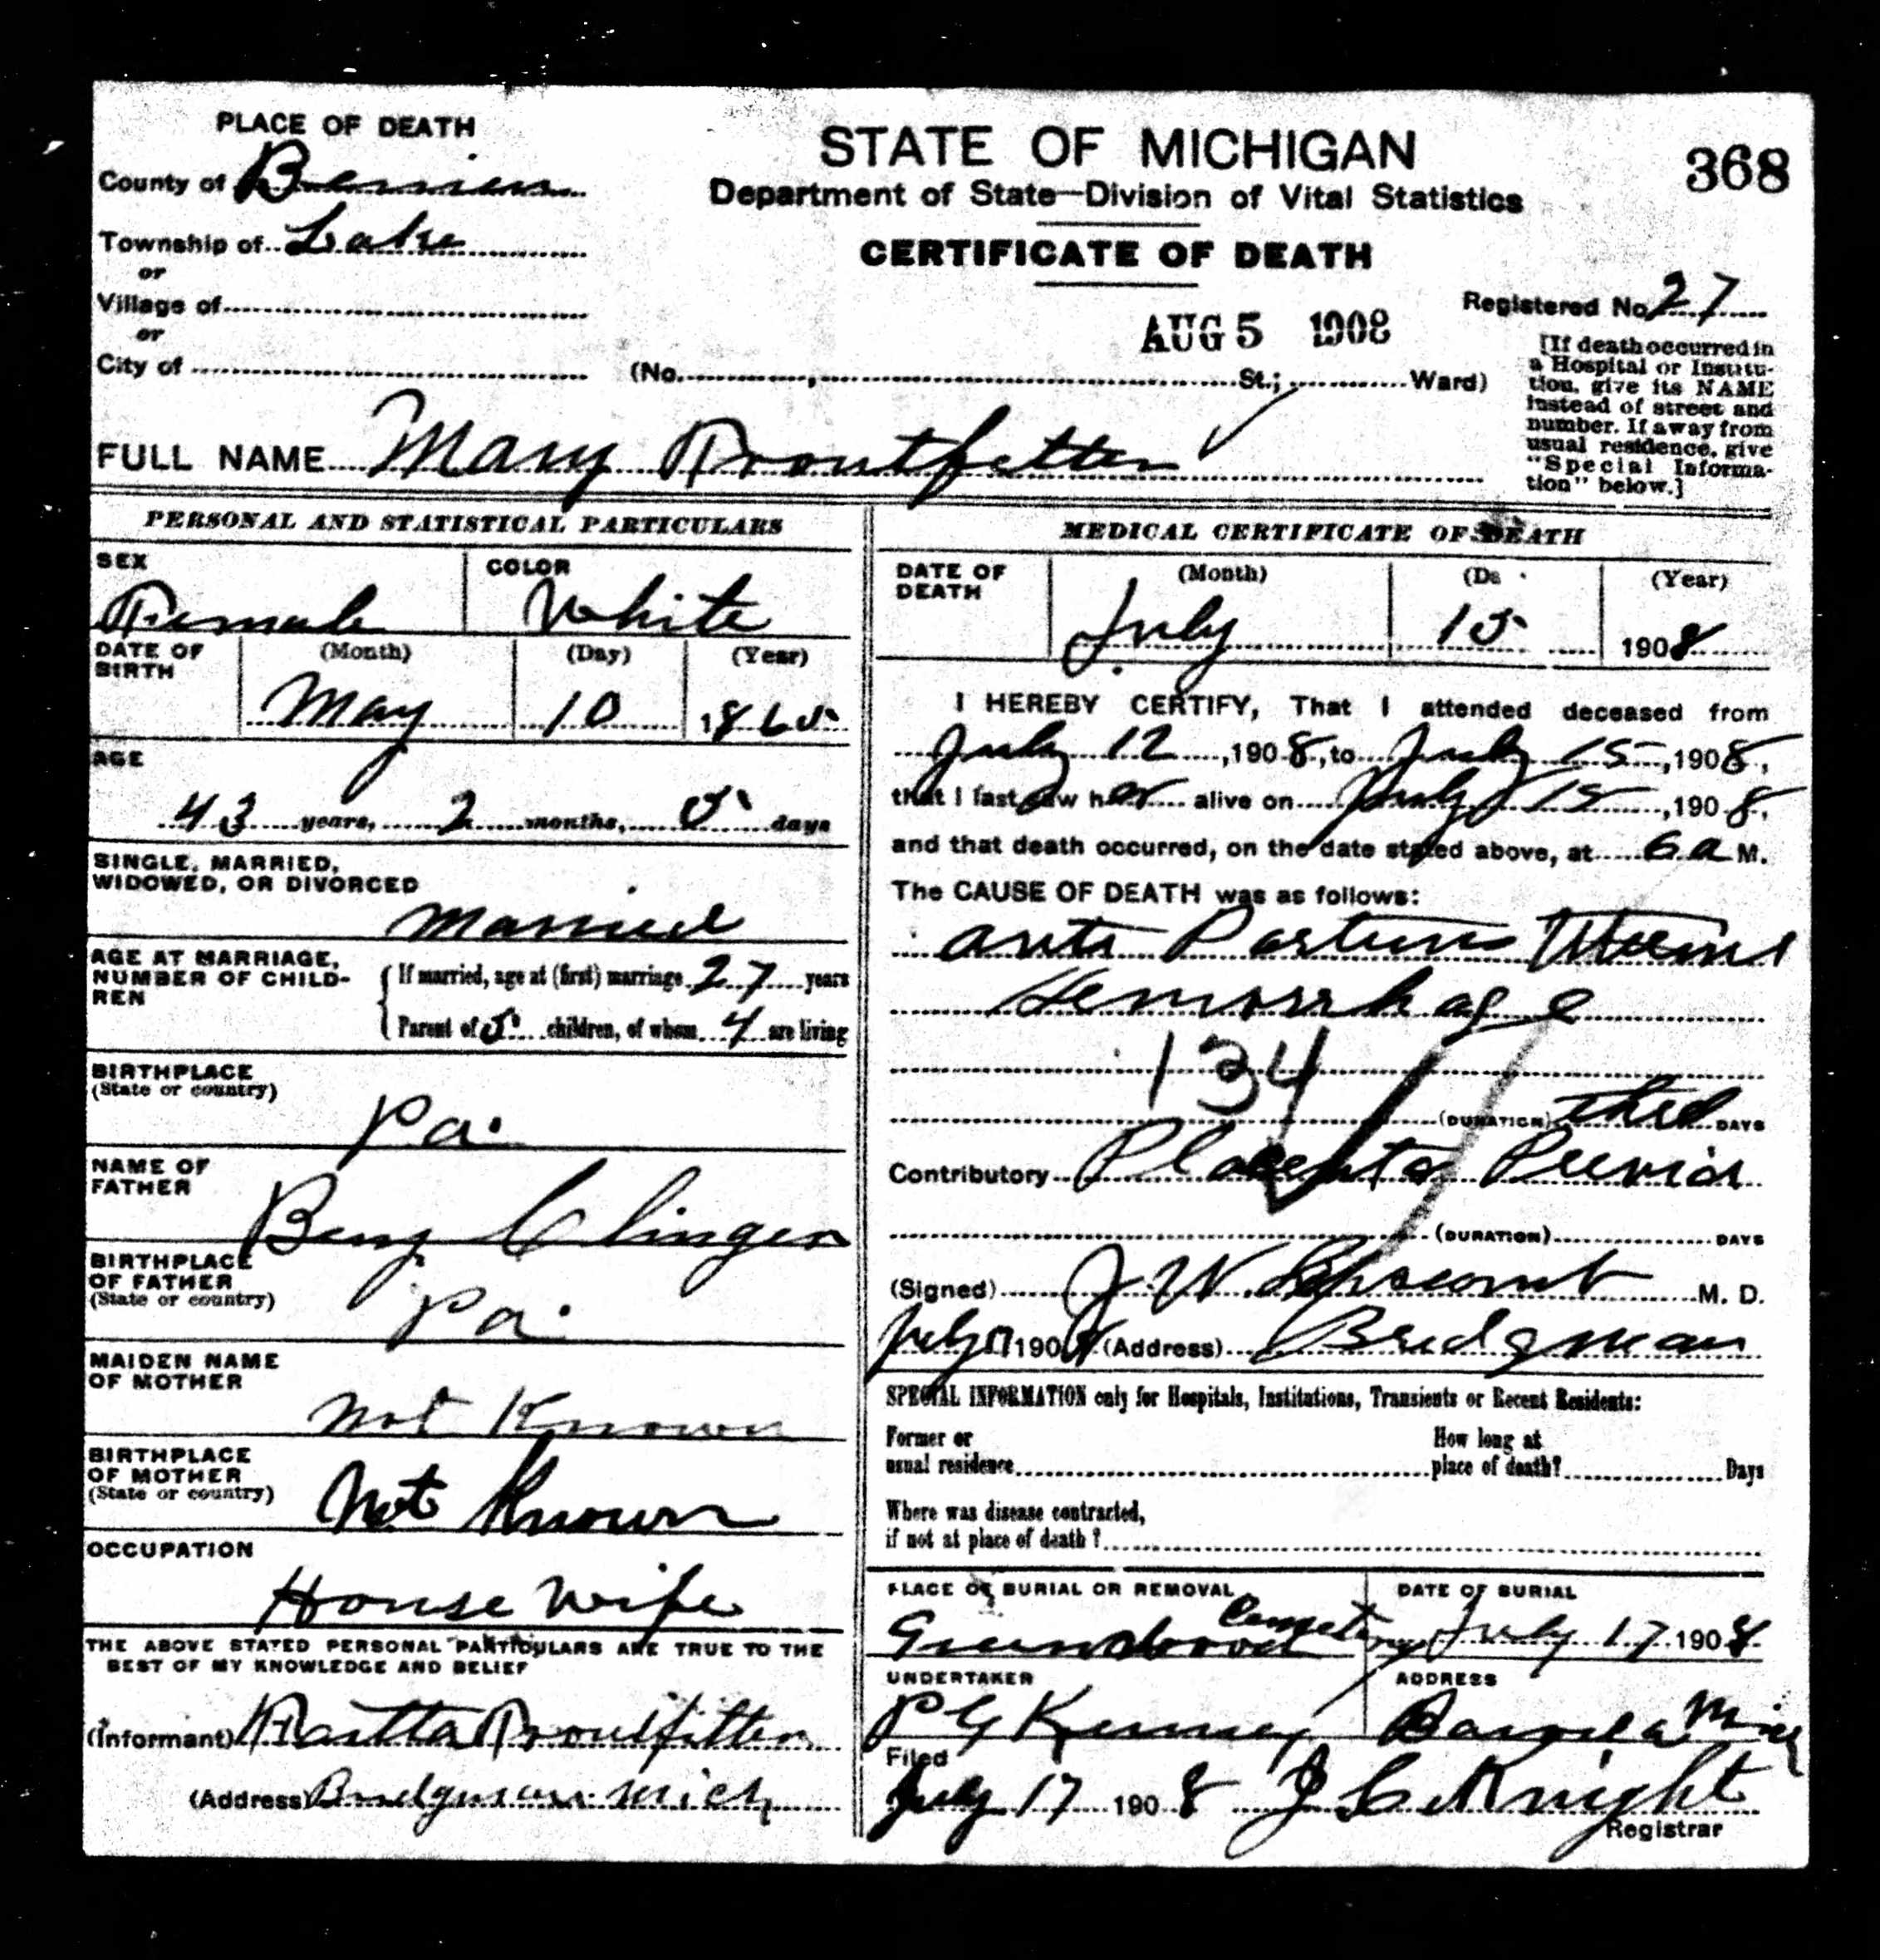 PLACE OF DEATH
County of Berrien
Township of Lake
or
Village of
or
City of
STATE OF MICHIGAN
Department of State—Division of Vital Statistics
CERTIFICATE OF DEATH
368
Registered No. 27
AUG 5 1908
(No. , St.; Ward)
[If death occurred in
a Hospital or Institu-
tion, give its NAME
instead of street and
number. If away from
usual residence, give
"Special Informa-
tion" below.]
FULL NAME Mary Troutfetter
PERSONAL AND STATISTICAL PARTICULARS
SEX
Female
COLOR
White
DATE OF BIRTH
(Month) (Day) (Year)
May 10 1865
AGE
43 years, 2 months, 5 days
SINGLE, MARRIED,
WIDOWED, OR DIVORCED
Married
AGE AT MARRIAGE,
NUMBER OF CHILD-
REN
If married, age at (first) marriage 27 years
Parent of 5 children, of whom 4 are living
BIRTHPLACE
(State or country)
Pa.
NAME OF
FATHER
Benj Clinger
BIRTHPLACE
OF FATHER
(State or country)
Pa.
MAIDEN NAME
OF MOTHER
Not Known
BIRTHPLACE
OF MOTHER
(State or country)
Not Known
OCCUPATION
House Wife
THE ABOVE STATED PERSONAL PARTICULARS ARE TRUE TO THE
BEST OF MY KNOWLEDGE AND BELIEF
(Informant)
(Address) Bridgman Mich
MEDICAL CERTIFICATE OF DEATH
DATE OF
DEATH
(Month) (Da (Year)
July 15 1908
I HEREBY CERTIFY, That I attended deceased from
July 12, 1908, to July 15, 1908,
that I last saw her alive on July 15, 1908,
and that death occurred, on the date stated above, at 6 a M.
The CAUSE OF DEATH was as follows:
Ante Partum Uterine
Hemorrhage
134
(DURATION) DAYS
Contributory Placenta Previa
(DURATION) DAYS
(Signed) J. W. M. D.
July 17 1908 (Address) Bridgman
SPECIAL INFORMATION only for Hospitals, Institutions, Transients or Recent Residents:
Former or
usual residence
How long at
place of death? Days
Where was disease contracted,
if not at place of death?
PLACE OF BURIAL OR REMOVAL
Greenwood Cemetery
DATE OF BURIAL
July 17 1908
UNDERTAKER
P G Kenney
ADDRESS
Baroda Mich
Filed
July 17 1908 Knight
Registrar